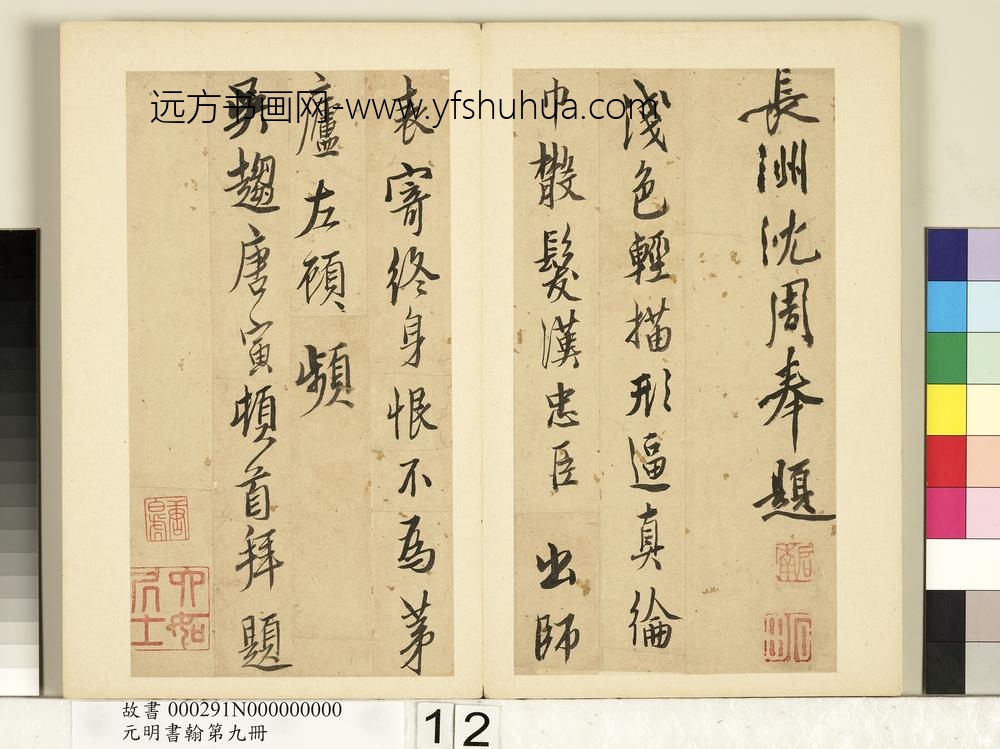 長洲沈周奉題
啟南
石田
淺色輕描形逼真綸
巾散髮漢忠臣出師
表寄終身恨不為茅
廬左顧頻
吳趨唐寅頓首拜題
唐寅
六如居士
远方书画网-www.yfshuhua.com
故書 000291N000000000
元明書翰第九冊
12